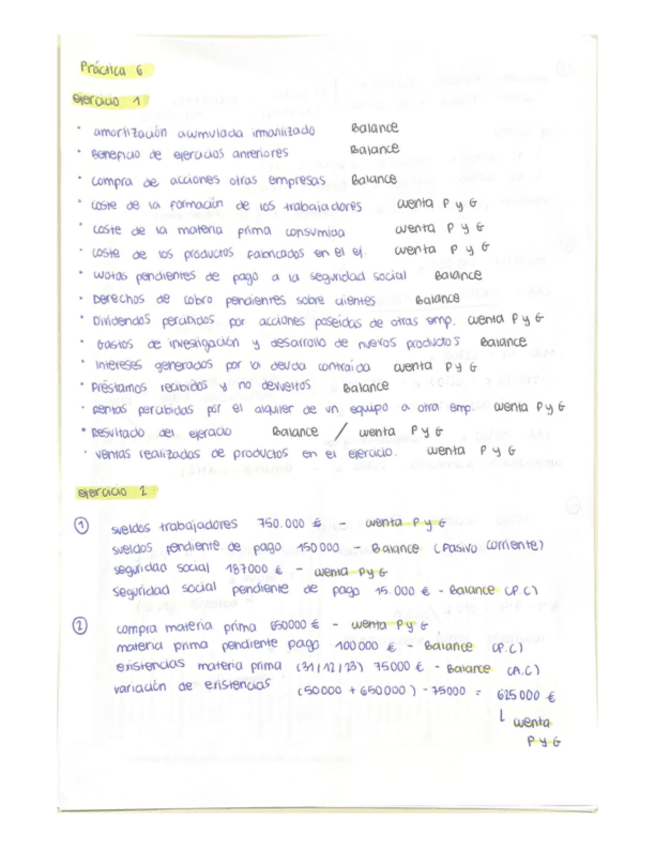 Práctica 6
ejercicio 1
· amortización acumulada imanlizado Balance
· Beneficio de ejercicios anteriores Balance
· compra de acciones otras empresas Balance
· coste de la formación de los trabajadores cuenta P y G
· coste de la materia prima consumida cuenta P y G
· coste de los productos fabricados en el ej. cuenta P y G
· cuotas pendientes de pago a la seguridad social Balance
· Derechos de cobro pendientes sobre clientes Balance
· Dividendos percibidos por acciones poseidas de otras emp. cuenta P y G
· Gastos de investigación y desarrollo de nuevos productos Balance
· Intereses generados por la deuda contraida cuenta P y G
· Préstamos recibidos y no devueltos Balance
· Rentas percibidas por el alquiler de un equipo a otra emp. cuenta P y G
· Resultado del ejercicio Balance / cuenta P y G
· ventas realizadas de productos en el ejercicio. cuenta P y G
ejercicio 2
① sueldos trabajadores 750.000 € - cuenta P y G
sueldos pendiente de pago 150000 - Balance (Pasivo corriente)
seguridad social 187000 € - cuenta P y G
seguridad social pendiente de pago 15.000 € - Balance (P.C)
② compra materia prima 650000 € - cuenta P y G
materia prima pendiente pago 100000 € - Balance (P.C)
existencias materia prima (31/12/23) 75000 € - Balance (A.C)
variación de existencias (50000 + 650000) - 75000 = 625000 €
↳ cuenta
P y G